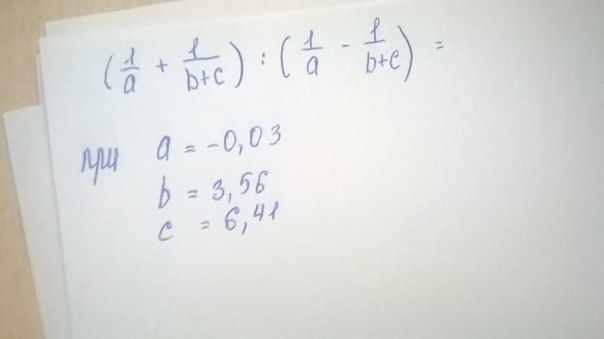 (1/a + 1/(b+c)) : (1/a - 1/(b+c)) =
при a = -0,03
b = 3,56
c = 6,41